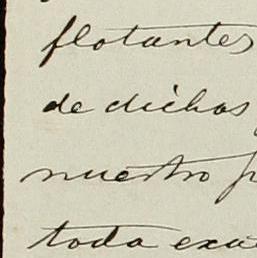 flotantes
de dichos
nuestro
toda exa